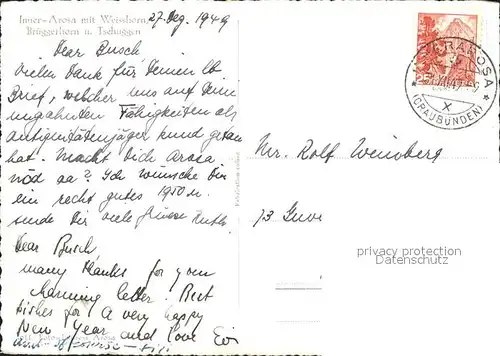 Inner-Arosa mit Weisshorn,
Brüggerhorn u. Tschuggen
27. Dez. 1949
Dear Busch
Vielen Dank für Deinen lb
Brief, welcher uns auf Deine
ungeahnten Fähigkeiten als
antiquitätenjäger kund getan
hat. Macht Dich Arosa
nöd aa? Ich wünsche Dir
ein recht gutes 1950 u.
sende Dir viele Grüsse
Dear Busch
many thanks for your
charming letter. Best
wishes for a very happy
New Year and love Evi
25
INNERAROSA
(GRAUBÜNDEN)
X
Mr. Rolf Weinberg
73
privacy protection
Datenschutz
Arosa